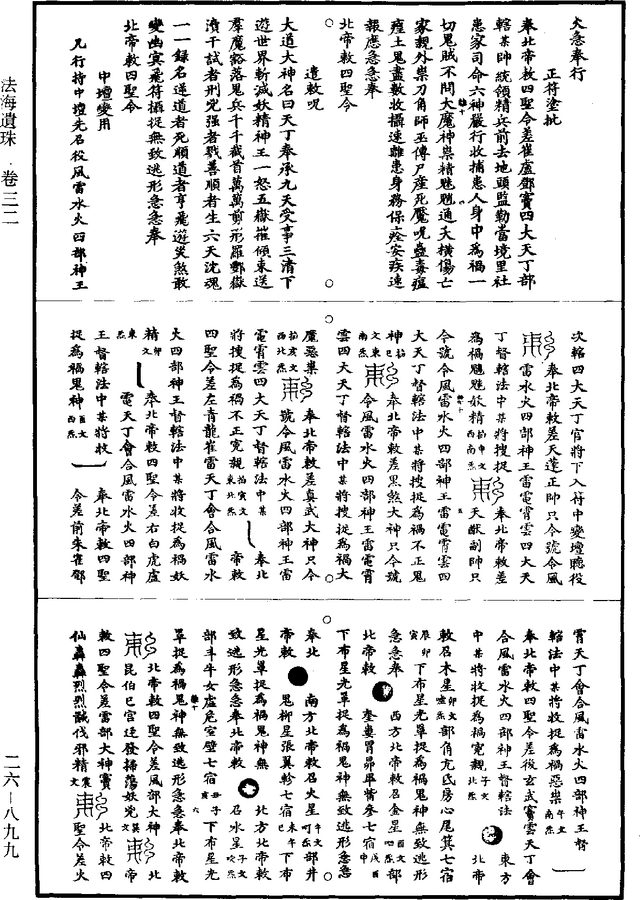 法海遺珠 · 卷三二
二六—八九九
火急奉行
正符塗批
奉北帝敕四聖令差崔盧鄧竇四大天丁部
轄某帥統領精兵前去地頭監勒當境里社
患家司命六神嚴行收捕患人身中為禍一
切鬼賊不問大魔神祟精魅魍魎夭橫傷亡
家親外祟刀角師巫傳尸產死魘呪蠱毒瘟
𤺌土鬼盡數收攝速離患身務保痊安疾速
報應急急奉
北帝敕四聖令
遣敕呪
大道大神名曰天丁奉承九天受事三清下
遊世界斬滅妖精神王一怒五嶽摧傾東送
羣魔豁落鬼兵千千截首萬萬剪形羅酆嶽
瀆干試者刑兇强者戮善順者生六天沈魂
一一録名逆道者死順道者亨飛遊災煞敢
變幽冥飛符攝捉無致逃形急急奉
北帝敕四聖令
中壇變用
凡行持中壇先召役風雷水火四部神王
次轄四大天丁官將下入符中變壇聽役
奉北帝敕差天蓬正帥只令號令風
雷水火四部神王雷電霄雲四大天
丁督轄法中某將搜捉 奉北帝敕差
為禍魍魎妖精 天猷副帥只
令號令風雷水火四部神王雷電霄雲四
大天丁督轄法中某將搜捉為禍不正鬼
神 奉北帝敕差黑煞大神只令號
令風雷水火四部神王雷電霄
雲四大天丁督轄法中某將搜捉為禍大
魔惡祟 奉北帝敕差真武大神只令
號令風雷水火四部神王雷
電霄雲四大天丁督轄法中某 奉北
將搜捉為禍不正寃親 帝敕
四聖令差左青龍崔雷天丁會合風雷水
火四部神王督轄法中某將收捉為禍妖
精 奉北帝敕四聖令差右白虎盧
電天丁會合風雷水火四部神
王督轄法中某將收 奉北帝敕四聖
捉為禍鬼神 令差前朱雀鄧
霄天丁會合風雷水火四部神王督
轄法中某將收捉為禍惡祟
奉北帝敕四聖令差後玄武竇雲天丁會
合風雷水火四部神王督轄法 東方
中某將收捉為禍寃親 北帝
敕召木星 部角亢氐房心尾箕七宿
下布星光罩捉為禍鬼神無致逃形
急急奉 西方北帝敕召金星 部
北帝敕 奎婁胃昴畢觜參七宿
下布星光罩捉為禍鬼神無致逃形急急
奉北 南方北帝敕召火星 部井
帝敕 鬼柳星張翼軫七宿 下布
星光罩捉為禍鬼神無 北方北帝敕
致逃形急急奉北帝敕 召水星
部斗牛女虛危室壁七宿 下布星光
罩捉為禍鬼神無致逃形急急奉北帝敕
北帝敕四聖令差風部大神 北
昆伯巳宮廷發揚蕩妖兇 帝
敕四聖令差雷部大神竇 北帝敕四
仙轟轟烈烈馘伐邪精 聖令差火